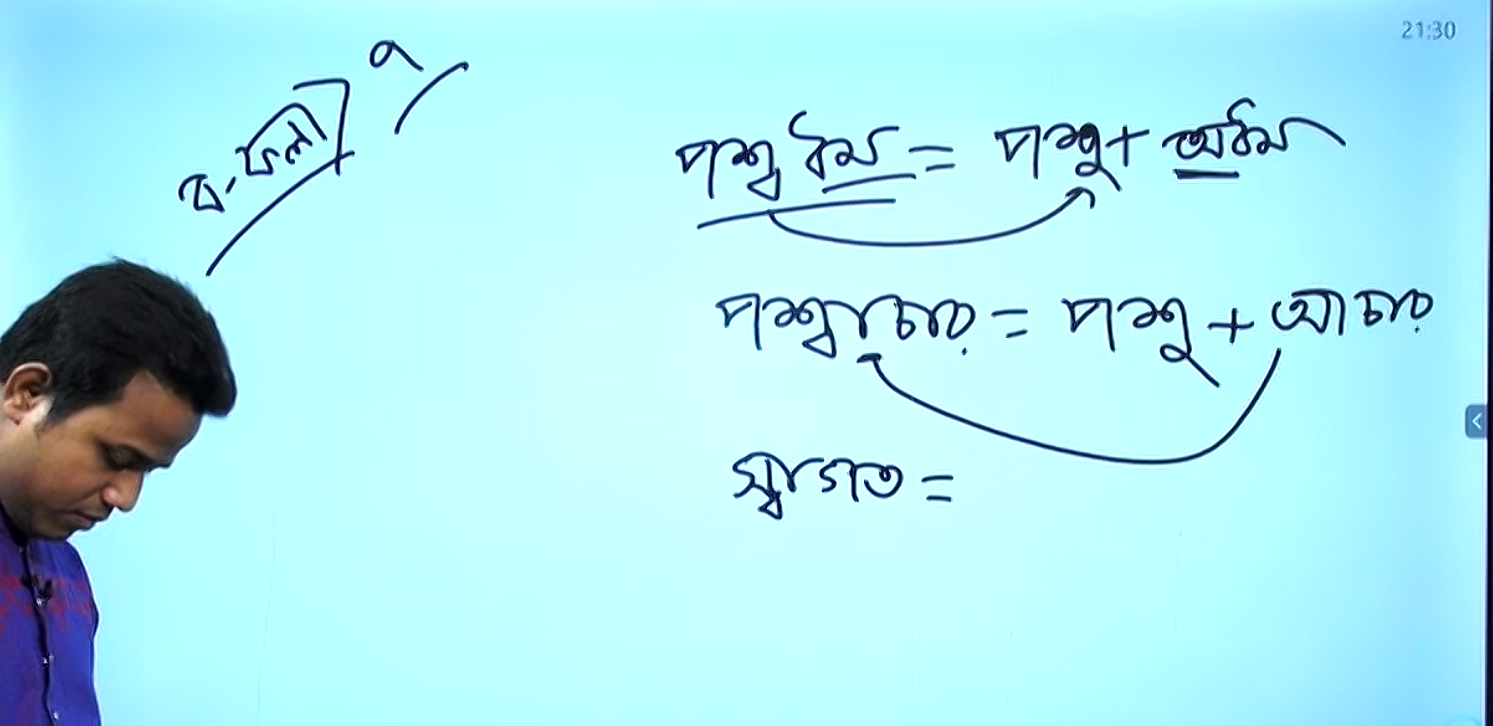 21:30
ব-ফলা
পশ্বধম = পশু + অধম
পশ্বাচার = পশু + আচার
স্বাগত =